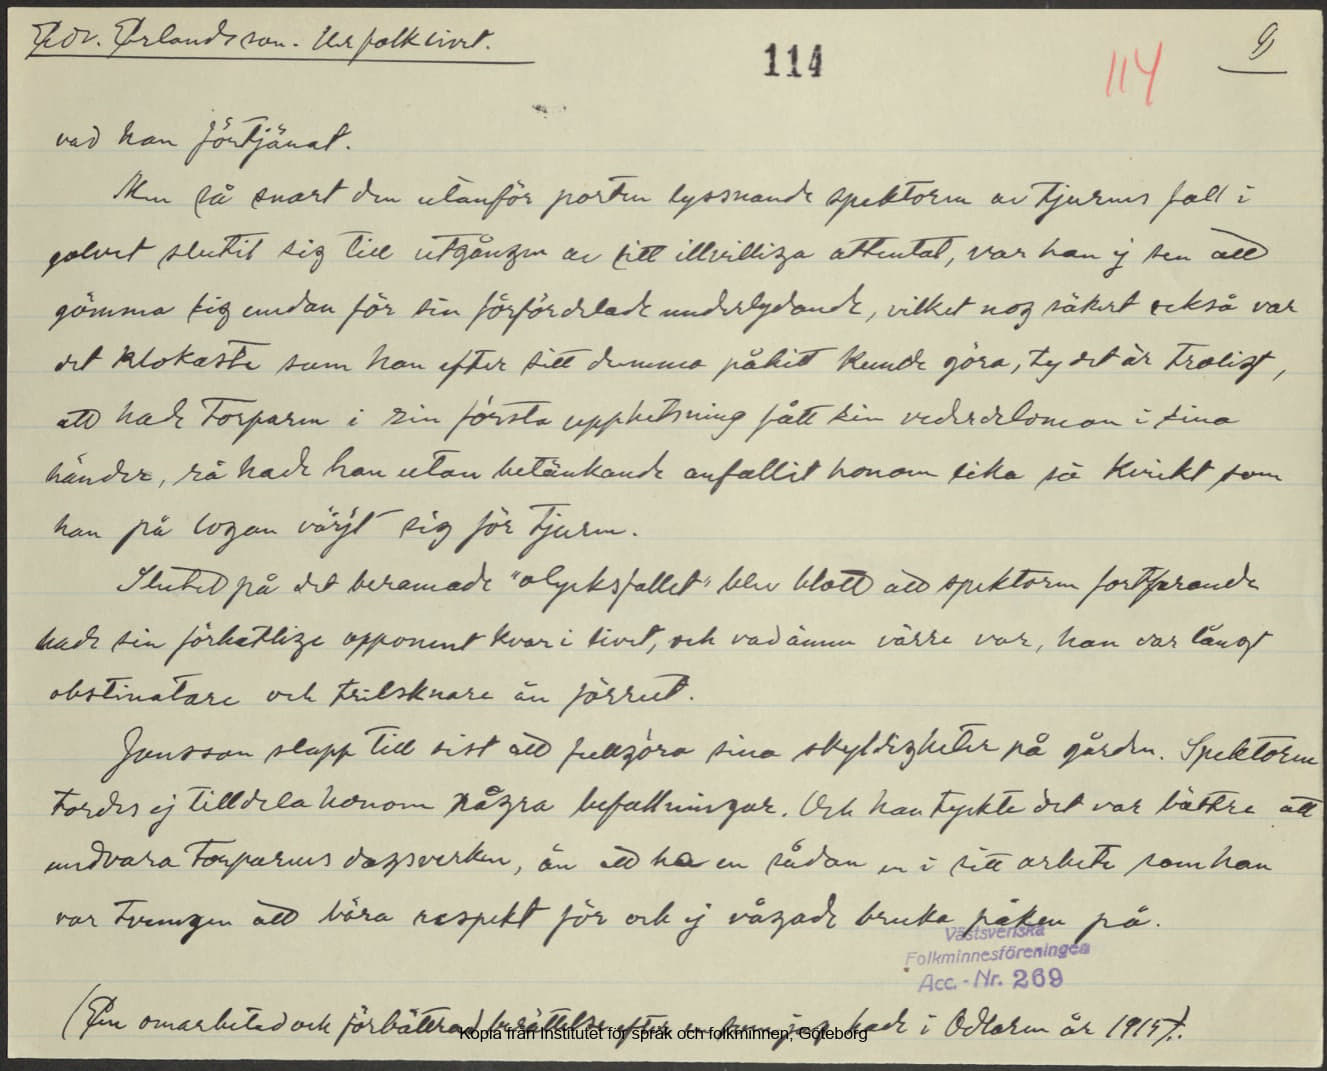 Edv. Erlandsson. Ur folklivet.
114
114
9
vad han förtjänat.
Men så snart den utanför porten lyssnande spektorn av tjurens fall i
golvet slutit sig till utgången av sitt illvilliga attentat, var han ej sen att
gömma sig undan för sin förfördelade underlydande, vilket nog säkert också var
det klokaste som han efter sitt dumma påhitt kunde göra, ty det är troligt,
att hade torparen i sin första upphetsning fått sin vederdeloman i sina
händer, så hade han utan betänkande anfallit honom lika så kvickt som
han på logan värjt sig för tjuren.
Slutet på det beramade "olycksfallet" blev blott att spektorn fortfarande
hade sin förhatlige opponent kvar i livet, och vad ännu värre var, han var långt
obstinatare och trilsknare än förrut.
Jansson slapp till sist att fullgöra sina skyldigheter på gården. Spektorn
tordes ej tilldela honom några befallningar. Och han tyckte det var bättre att
undvara torparens dagsverken, än att ha en sådan en i sitt arbete som han
var tvungen att bära respekt för och ej vågade bruka påken på.
Västsvenska
Folkminnesföreningen
Acc.-Nr. 269
(En omarbetad och förbättrad berättelse efter en som jag hade i Odlaren år 1915).
Kopia från Institutet för språk och folkminnen, Göteborg